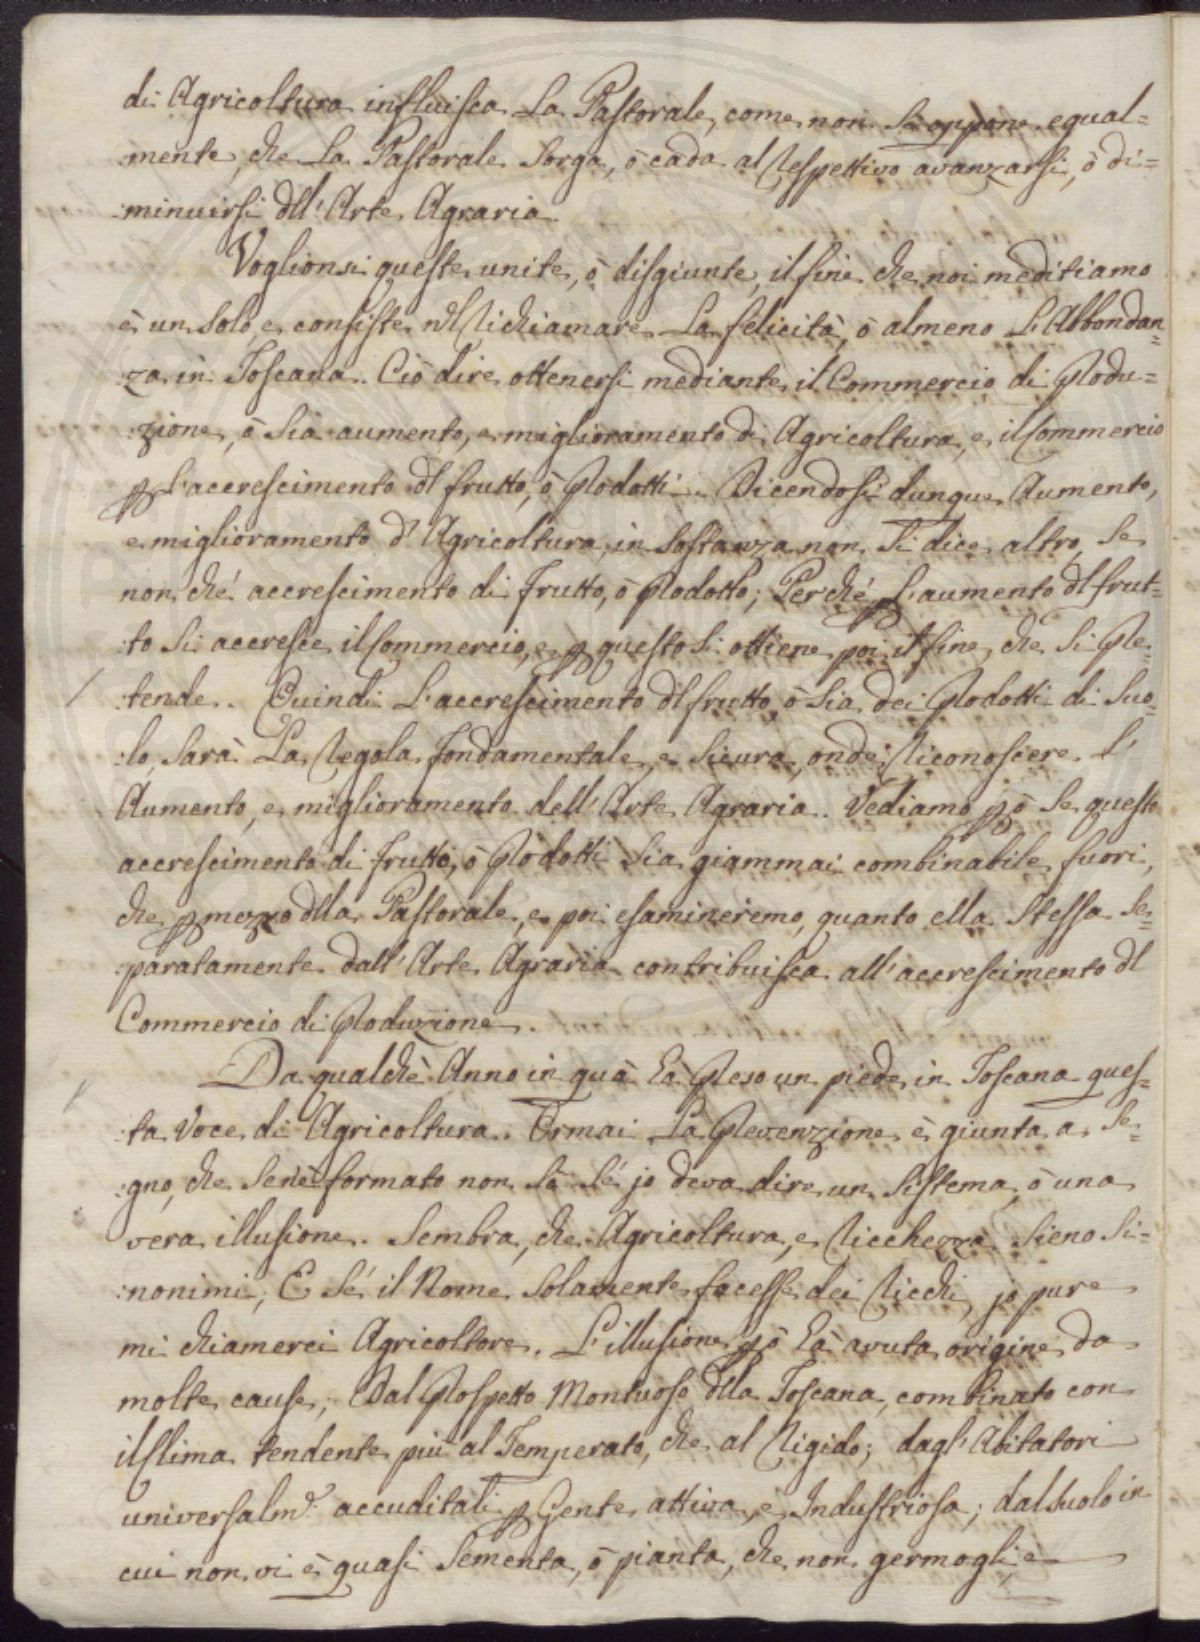 di Agricoltura influisca La Pastorale, come non si oppone egual=
mente, che La Pastorale Sorga, ò cada al Respettivo avanzarsi, ò di=
:minuirsi dll'Arte Agraria
Voglionsi queste unite, ò disgiunte, il fine che noi meditiamo
è un Solo, e consiste nel Richiamare La felicità, ò almeno L'Abbondan
=za in Toscana. Ciò dire ottenersi mediante il Commercio di Produ=
:zione, ò Sia aumento, e miglioramento di Agricoltura, e il Commercio
p L'accrescimento dl frutto, ò Prodotti. Dicendosi dunque Aumento,
e miglioramento d'Agricoltura, in Sostanza non Si dice altro, Se
non ché accrescimento di Frutto, ò Prodotto; Perché p L'aumento dl frut=
:to Si accresce il Commercio, e p questo Si ottiene poi il fine, che Si Pre
=tende. Quindi L'accrescimento dl frutto, ò Sia dei Prodotti di Suo=
:lo, Sarà La Regola fondamentale, e Sicura, onde Riconoscere L'
Aumento, e miglioramento dell'Arte Agraria. Vediamo pò Se questo
accrescimento di frutto, ò Prodotti Sia giammai combinabile fuori,
che p mezzo dlla Pastorale, e poi esamineremo, quanto ella Stessa Se=
:paratamente dall'Arte Agraria contribuisca all'accrescimento dl
Commercio di Produzione.
Da qualchè Anno in quà hà Preso un piede in Toscana ques=
:ta Voce di Agricoltura. Ormai La Prevenzione è giunta a Se=
:gno, che Senè formato non Sò Sé jo deva dire un Sistema, ò una
vera illusione. Sembra, che Agricoltura, e Ricchezza Sieno Si=
:nonimi; E Sé il Nome Solamente facesse dei Ricchi, jo pure
mi chiamerei Agricoltore. L'illusione pò hà avuta origine da
molte cause; Dal Prospetto Montuoso dlla Toscana, combinato con
il Clima tendente più al Temperato, che al Rigido; dagl'Abitatori
universalmē. accuditali p Gente attiva, e Industriosa; dal Suolo in
cui non vi è quasi Sementa, ò pianta, che non germogli, e